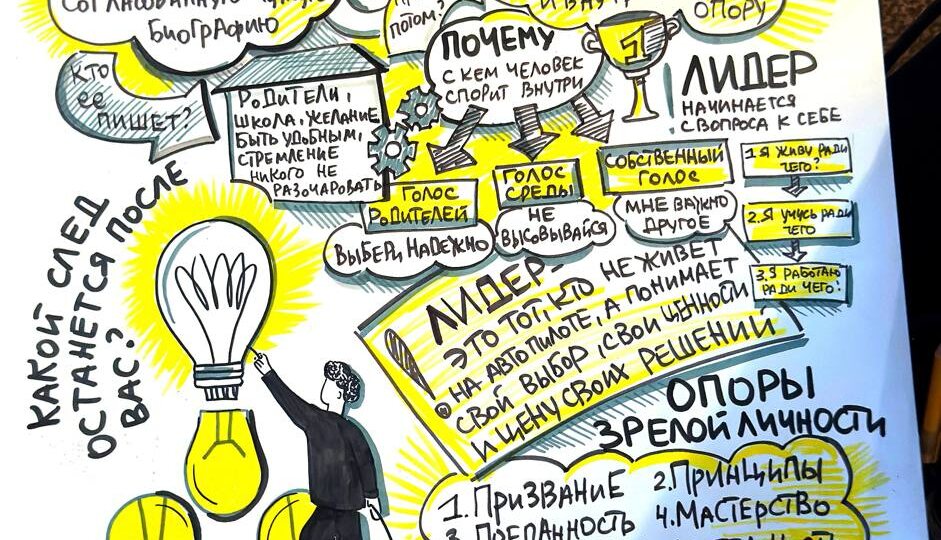 БИОГРАФИЮ
ПОТОМ?
И ВНУТР
ОПОРУ
КТО
ЕЕ
ПИШЕТ?
РОДИТЕЛИ,
ШКОЛА, ЖЕЛАНИЕ
БЫТЬ УДОБНЫМ,
СТРЕМЛЕНИЕ
НИКОГО НЕ
РАЗОЧАРОВАТЬ
ПОЧЕМУ
С КЕМ ЧЕЛОВЕК
СПОРИТ ВНУТРИ
1
ГОЛОС
РОДИТЕЛЕЙ
ВЫБЕРИ НАДЕЖНО
ГОЛОС
СРЕДЫ
НЕ
ВЫСОВЫВАЙСЯ
СОБСТВЕННЫЙ
ГОЛОС
МНЕ ВАЖНО
ДРУГОЕ
! ЛИДЕР
НАЧИНАЕТСЯ
С ВОПРОСА К СЕБЕ
1 Я ЖИВУ РАДИ
ЧЕГО?
2. Я УЧУСЬ РАДИ
ЧЕГО
3. Я РАБОТАЮ
РАДИ ЧЕГО?
КАКОЙ СЛЕД
ОСТАНЕТСЯ ПОСЛЕ
ВАС?
! ЛИДЕР-
ЭТО ТОТ, КТО НЕ ЖИВЕТ
НА АВТОПИЛОТЕ, А ПОНИМАЕТ
СВОЙ ВЫБОР, СВОИ ЦЕННОСТИ
И ЦЕНУ СВОИХ РЕШЕНИЙ
ОПОРЫ
ЗРЕЛОЙ ЛИЧНОСТИ
1. ПРИЗВАНИЕ 2. ПРИНЦИПЫ
3. ПРЕДАННОСТЬ 4. МАСТЕРСТВО